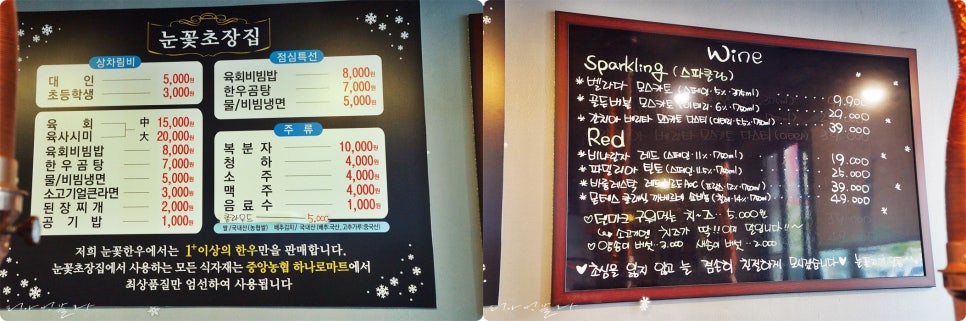 눈꽃초장집
상차림비
대 인 5,000원
초등학생 3,000원
육 회 中 15,000원
육사시미 大 20,000원
육회비빔밥 8,000원
한우곰탕 7,000원
물/비빔냉면 5,000원
소고기얼큰라면 3,000원
된장찌개 2,000원
공 기 밥 1,000원
점심특선
육회비빔밥 8,000원
한우곰탕 7,000원
물/비빔냉면 5,000원
주 류
복 분 자 10,000원
청 하 4,000원
소 주 4,000원
맥 주 4,000원
음 료 수 1,000원
5,000
쌀/국내산(농협쌀) 배추김치/ 국내산(배추:국산, 고추가루:중국산)
저희 눈꽃한우에서는 1+이상의 한우만을 판매합니다.
눈꽃초장집에서 사용하는 모든 식자재는 중앙농협 하나로마트에서
최상품질만 엄선하여 사용됩니다
Wine
Sparkling (스파클링)
* 벨라다 모스카토 (스페인·5%·375ml) 9.900
* 골든버블 모스카토 (이태리·6%·750ml) 29.000
* 모스카토 다스티 39.000
Red
* 레드 (스페인·11%·750ml) 19.000
* 틴토 (스페인·11.5%·750ml) 25.000
* 39.000
* 49.000
♡ 덴마크 구워먹는 치·즈·· 5.000원
소고기엔 치즈가 딱!!
♡ 양송이 버섯·2.000 새송이 버섯··2.000
♥ 초심을 잃지 않고 늘 겸손히 친절하게 모시겠습니다 ♥